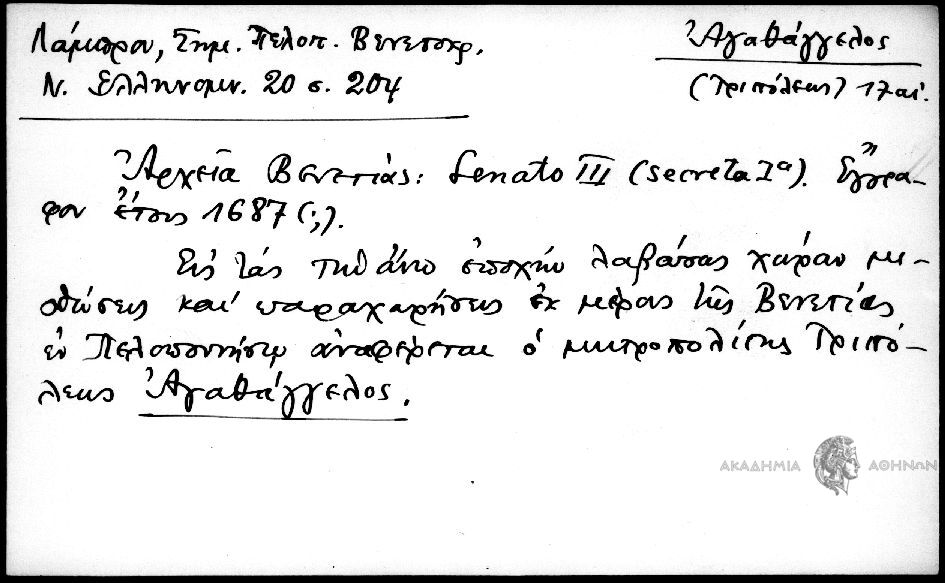 Λάμπρου, Σημ. Πελοπ. Βενετοκρ.
Ν. Ελληνομν. 20 σ. 204
Ἀγαθάγγελος
(Τριπόλεως) 17 αἰ.
Ἀρχεῖα Βενετίας: Senato III (secreta Iª). Ἔγγρα-
φον ἔτους 1687 (;).
Εἰς τάς τήν ἄνω ἐποχήν λαβούσας χώραν μι-
σθώσεις καί παραχωρήσεις ἐκ μέρους τῆς Βενετίας
ἐν Πελοποννήσῳ ἀναφέρεται ὁ μητροπολίτης Τριπό-
λεως Ἀγαθάγγελος.
ΑΚΑΔΗΜΙΑ ΑΘΗΝΩΝ